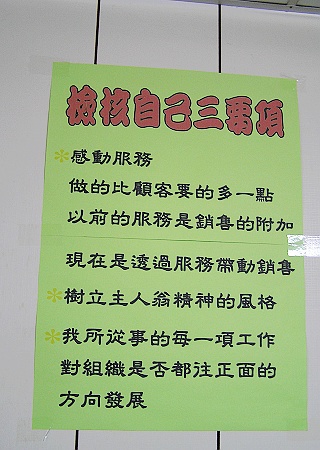 檢核自己三要項
*感動服務
做的比顧客要的多一點
以前的服務是銷售的附加
現在是透過服務帶動銷售
*樹立主人翁精神的風格
*我所從事的每一項工作
對組織是否都往正面的
方向發展